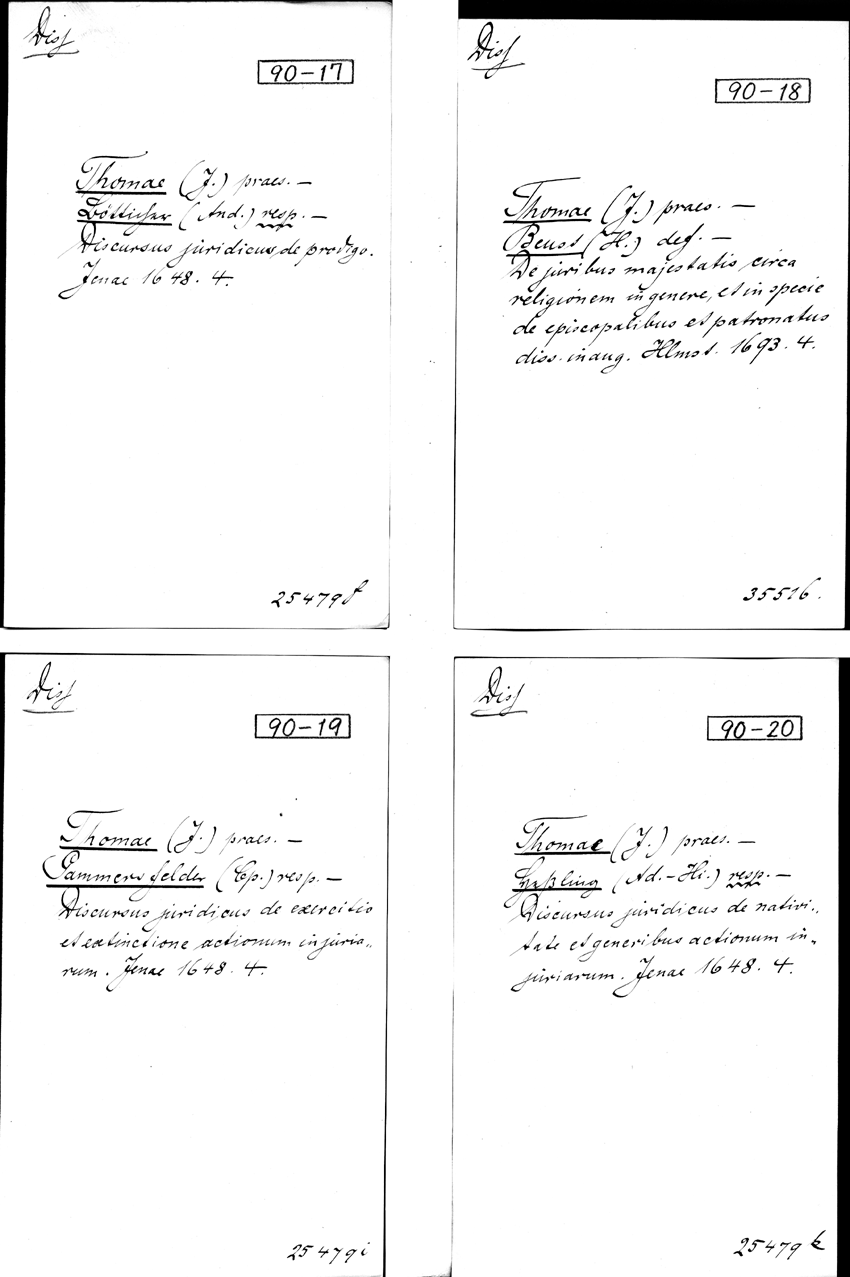 Diss
90-17
Thomae (J.) praes. —
Bötticher (And.) resp. —
Discursus juridicus de prodigo.
Jenae 1648. 4.
25479f
Diss
90-18
Thomae (J.) praes. —
Beust (H.) def. —
De juribus majestatis circa
religionem in genere, et in specie
de episcopalibus et patronatus
diss. inaug. Hlmst. 1693. 4.
35516.
Diss
90-19
Thomae (J.) praes. —
Pammersfelder (Cp.) resp. —
Discursus juridicus de exercitio
et extinctione actionum injuria„
rum. Jenae 1648. 4.
25479i
Diss
90-20
Thomae (J.) praes. —
(Ad.-Hi.) resp. —
Discursus juridicus de nativi„
tate et generibus actionum in„
juriarum. Jenae 1648. 4.
25479k